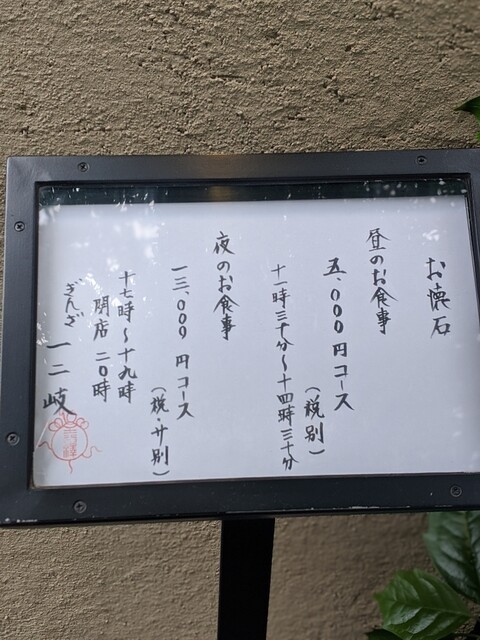 お懐石
昼のお食事
五、000円コース
(税別)
十一時三十分〜十四時三十分
夜のお食事
一三、000円コース
(税・サ別)
十七時〜十九時
閉店 二0時
ぎんざ 一二岐